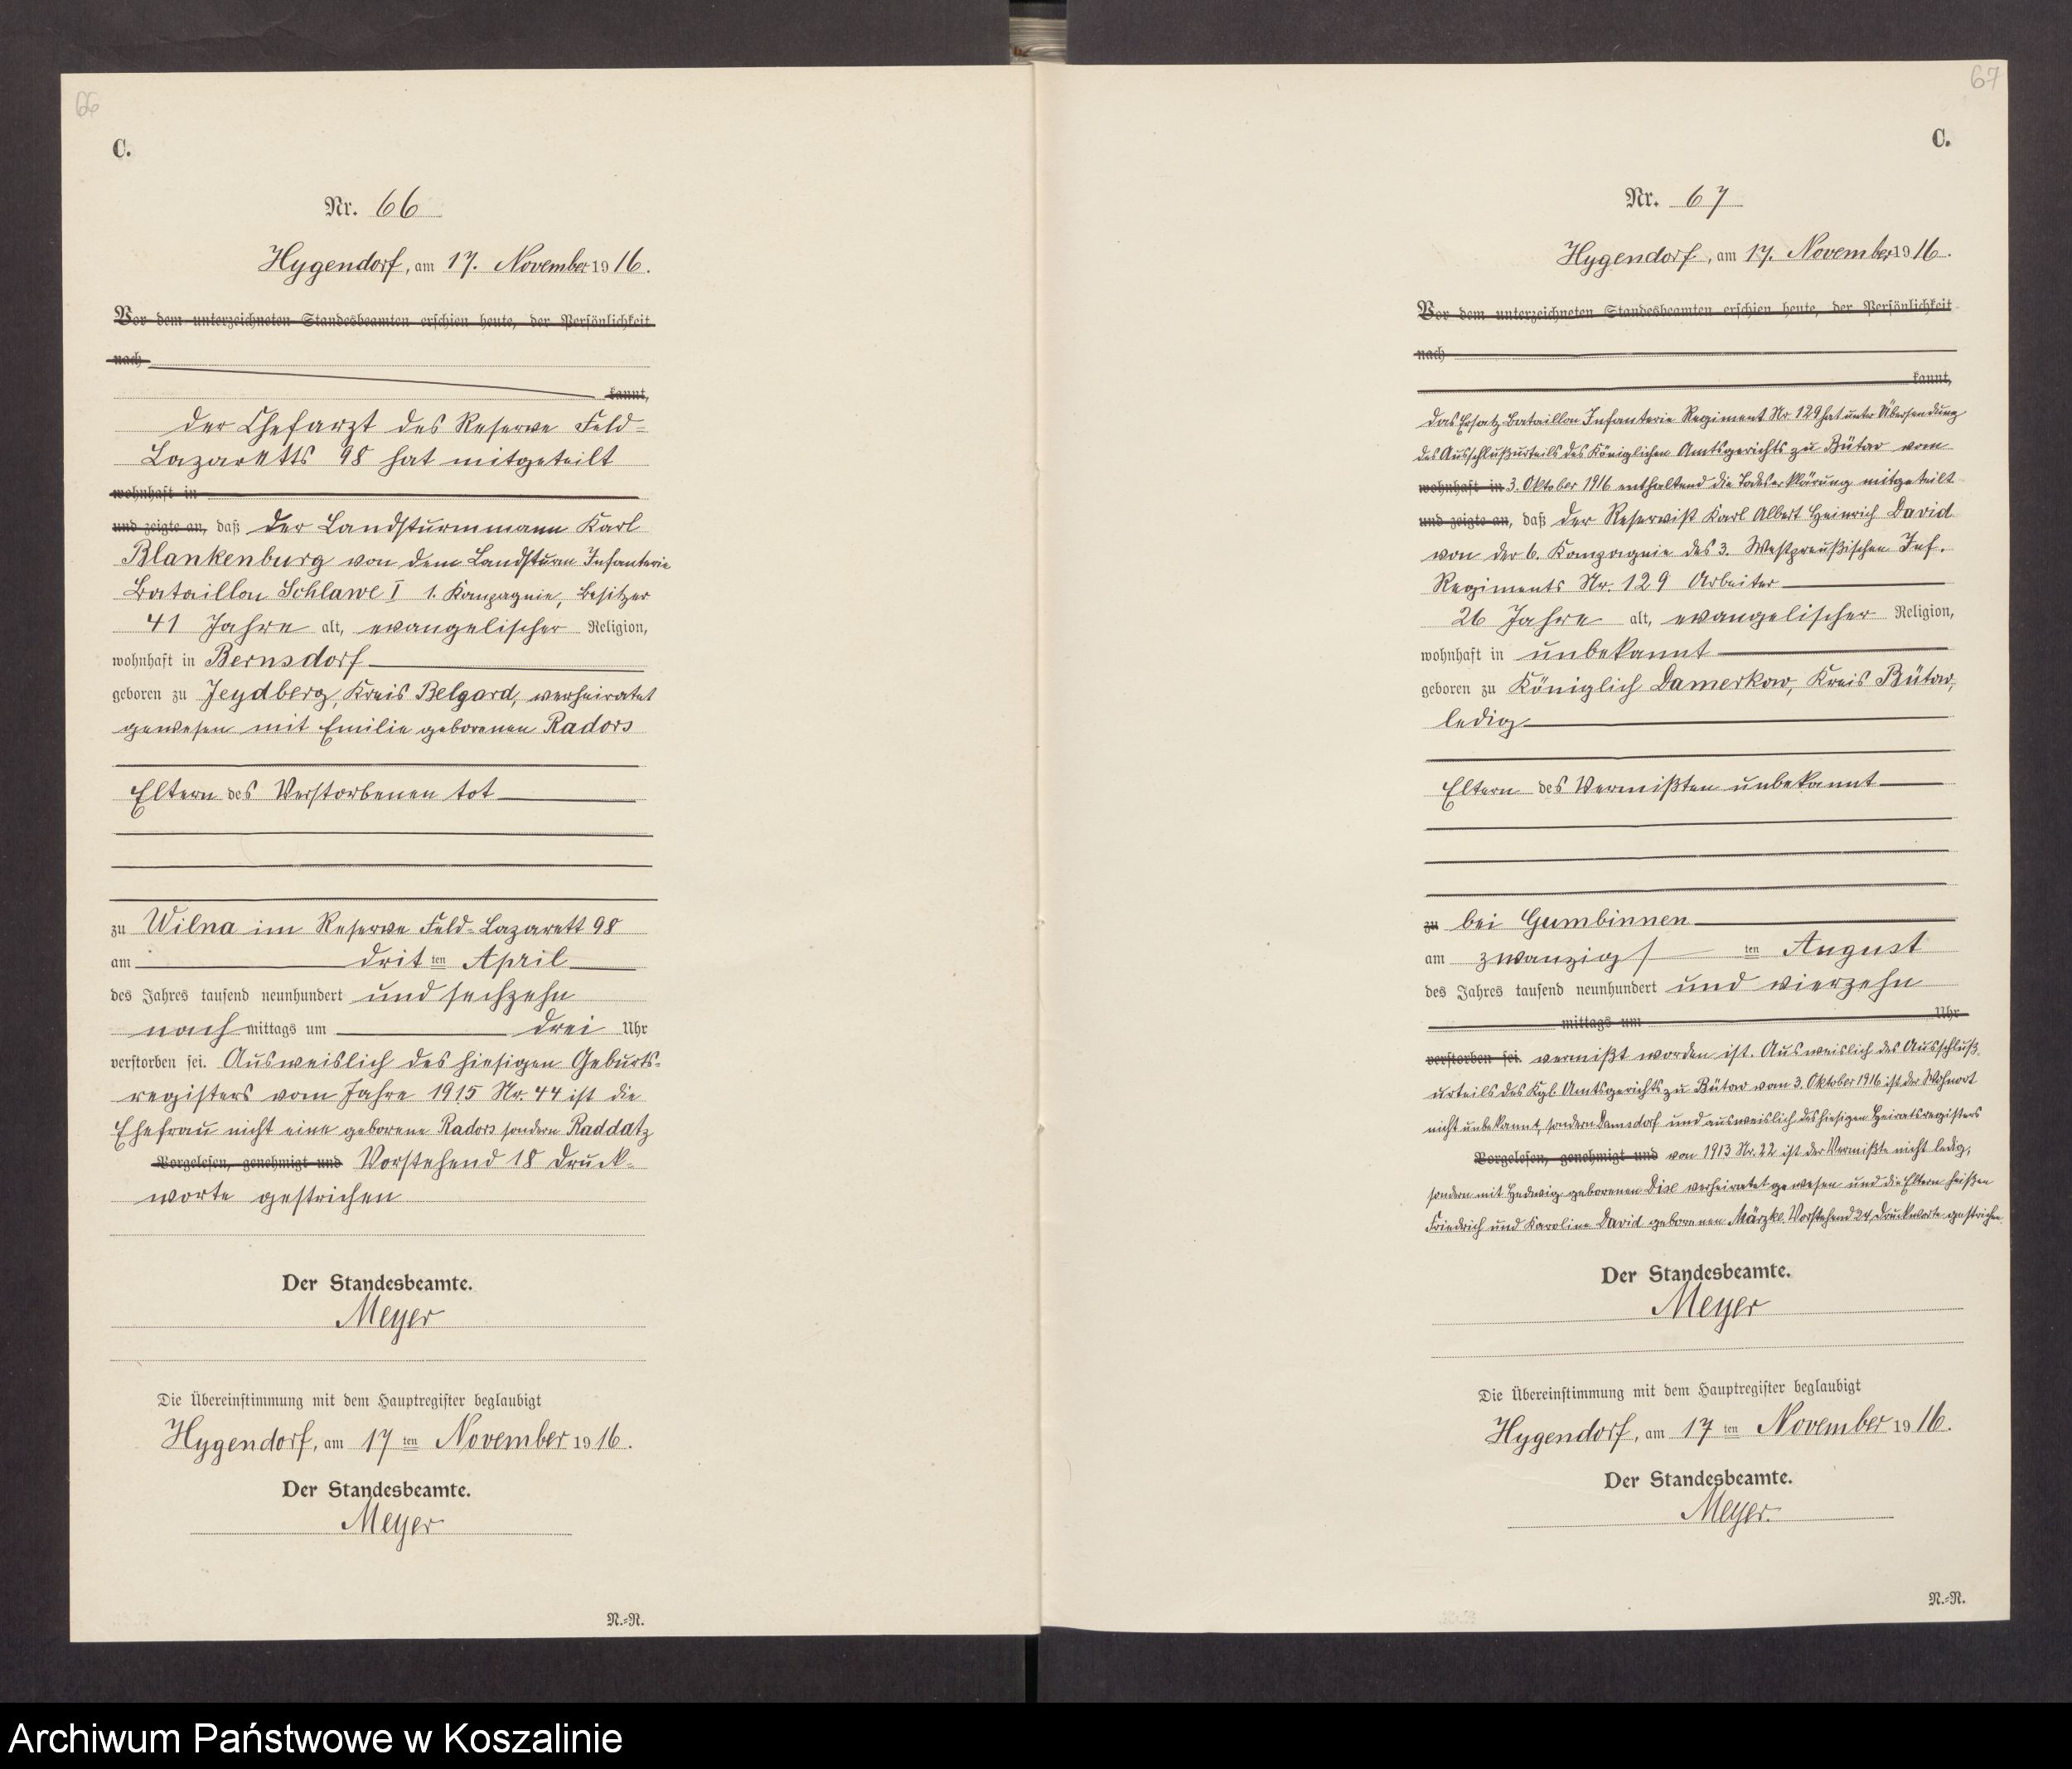 66
C.
Nr. 66
Hygendorf, am 17. November 1916.
Vor dem unterzeichneten Standesbeamten erschien heute, der Persönlichkeit
nach
kannt,
der Chefarzt des Reserve Feld-
Lazaretts 98 hat mitgeteilt
wohnhaft in
und zeigte an, daß der Landsturmmann Karl
Blankenburg von dem Landsturm Infanterie
Bataillon Schlawe I 1. Kompagnie, Besitzer
41 Jahre alt, evangelischer Religion,
wohnhaft in Bernsdorf
geboren zu Jeydberg, Kreis Belgard, verheiratet
gewesen mit Emilie geborenen Radors
Eltern des Verstorbenen tot
zu Wilna im Reserve Feld-Lazarett 98
am drit ten April
des Jahres tausend neunhundert und sechzehn
nach mittags um drei Uhr
verstorben sei. Ausweislich des hiesigen Geburts-
registers vom Jahre 1915 Nr. 44 ist die
Ehefrau nicht eine geborene Radors sondern Raddatz
Vorgelesen, genehmigt und Vorstehend 18 Druck-
worte gestrichen
Der Standesbeamte.
Meyer
Die Übereinstimmung mit dem Hauptregister beglaubigt
Hygendorf, am 17 ten November 1916.
Der Standesbeamte.
Meyer
N.-R.
67
C.
Nr. 67
Hygendorf, am 17. November 1916.
Vor dem unterzeichneten Standesbeamten erschien heute, der Persönlichkeit
nach
kannt,
das Ersatz Bataillon Infanterie Regiment Nr. 129 hat unter Übersendung
des Ausschlußurteils des Königlichen Amtsgerichts zu Bütow vom
wohnhaft in 3. Oktober 1916 enthaltend die Todeserklärung mitgeteilt
und zeigte an, daß der Reservist Karl Albert Heinrich David
von der 6. Kompagnie des 3. Westpreußischen Inf.
Regiments Nr. 129 Arbeiter
26 Jahre alt, evangelischer Religion,
wohnhaft in unbekannt
geboren zu Königlich Damerkow, Kreis Bütow,
ledig
Eltern des Vermißten unbekannt
zu bei Gumbinnen
am zwanzigs ten August
des Jahres tausend neunhundert und vierzehn
mittags um Uhr
verstorben sei. vermißt worden ist. Ausweislich des Ausschluß-
urteils des Kgl. Amtsgerichts zu Bütow vom 3. Oktober 1916 ist der Wohnort
nicht unbekannt, sondern Damsdorf und ausweislich des hiesigen Heiratsregisters
Vorgelesen, genehmigt und von 1913 Nr. 22 ist der Vermißte nicht ledig,
sondern mit Hedwig geborenen verheiratet gewesen und die Eltern heißen
Friedrich und Karoline David geborenen Märzke. Vorstehend 24 Druckworte gestrichen
Der Standesbeamte.
Meyer
Die Übereinstimmung mit dem Hauptregister beglaubigt
Hygendorf, am 17 ten November 1916.
Der Standesbeamte.
Meyer.
N.-R.
Archiwum Państwowe w Koszalinie